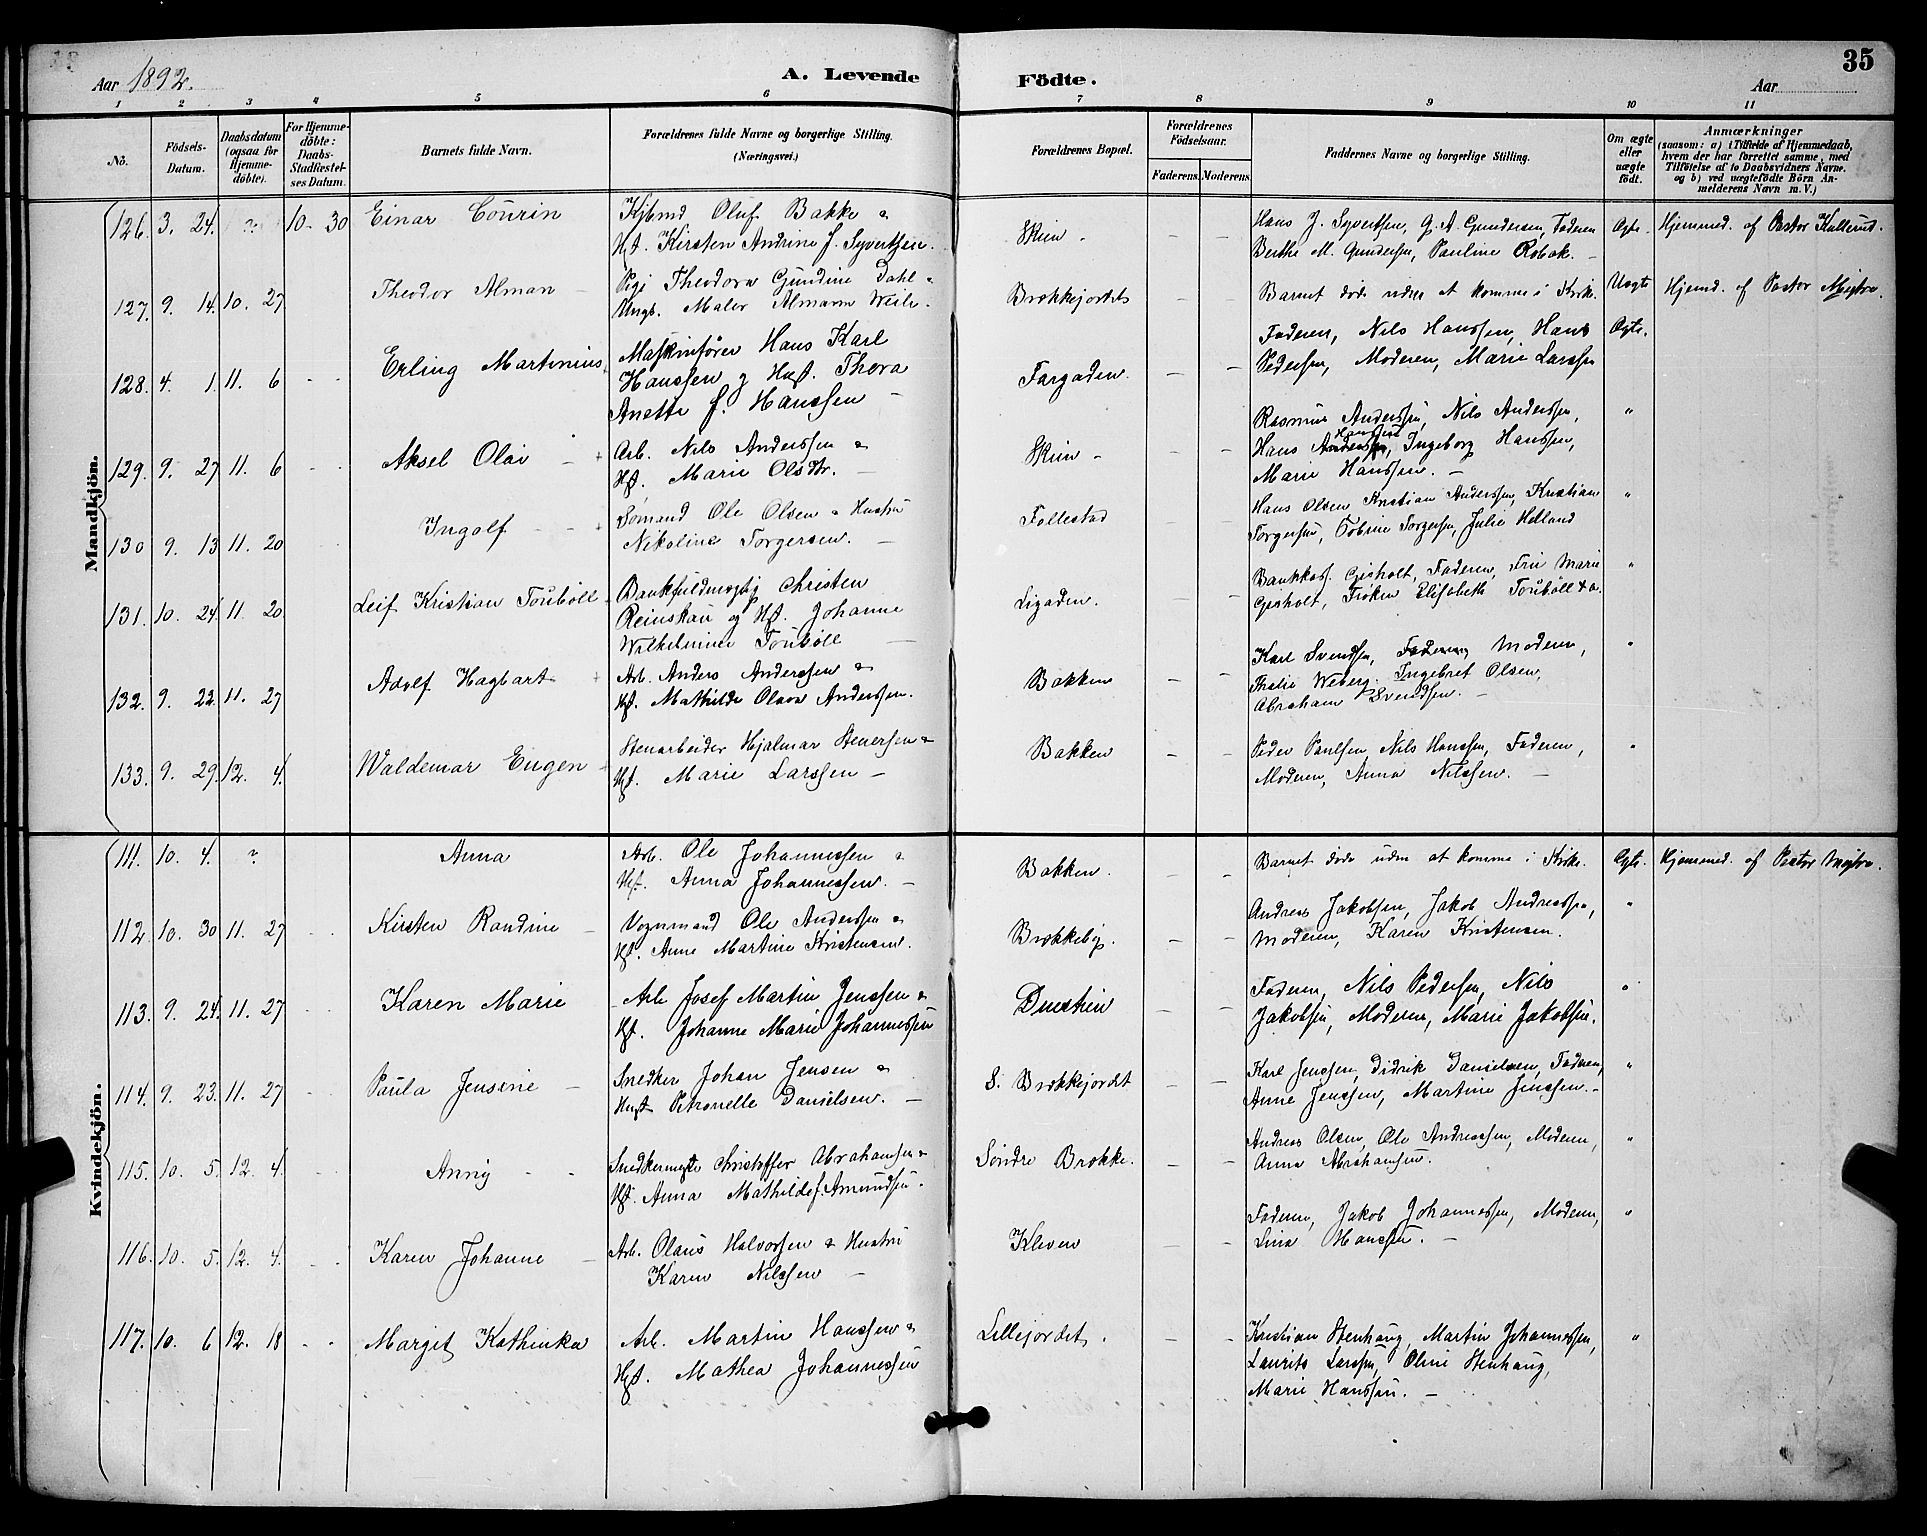 35
Aar 1892.
A. Levende Födte.
Aar
1 2 3 4 5 6 7 8 9 10 11
No.
Födsels-Datum.
Daabsdatum (ogsaa for Hjemme-döbte).
For Hjemme-döbte: Daabs-Stadfæstel-ses Datum.
Barnets fulde Navn.
Forældrenes fulde Navne og borgerlige Stilling.
(Næringsvei.)
Forældrenes Bopæl.
Forældrenes Födselsaar.
Faderens. Moderens.
Faddernes Navne og borgerlige Stilling.
Om ægte eller uægte födt.
Anmærkninger
(saasom: a) i Tilfælde af Hjemmedaab, hvem der har forrettet samme, med Tilföielse af to Daabsvidners Navne, og b) ved uægtefödte Börn An-melderens Navn m. V.)
Mandkjön.
126. 3. 24. ? 10 - 30 Einar Courin
Kjbmd Oluf Bakke &
Hst. Kirsten Andrine f. Syvertsen.
Skien - - -
Hans J. Syvertsen, G. A. Gundersen, Faderen
Berthe M. Gundersen, Pauline Robak. -
Ægte. Hjemmed. af Pastor Kullerud.
127. 9. 14. 10. 27 Theodor Alman -
Pige Theodora Gundine Dahl &
Ungk. Maler Almann Weile.
Brækkejordet -
Barnet döde uden at komme i Kirke. Uægte Hjemd. af Pastor
128. 4. 1. 11. 6 - - Erling Martinius
Maskinfører Hans Karl
Hanssen og Hust. Thora
Anette f. Hanssen -
Fargaden. - -
Faderen, Nils Hanssen, Hans
Pedersen, Moderen, Marie Larssen
Ægte.
129. 9. 27 11. 6 - - Aksel Olai -
Arb. Nils Anderssen &
Hst. Marie Olsdtr. -
Skien - - -
Rasmus Anderssen, Nils Anderssen,
Hanssen
Hans Anderssen, Ingeborg Hanssen,
Marie Hanssen. -
"
130 9. 13 11. 20 Ingolf - -
Sømand Ole Olsen & Hustru
Nikoline Torgersen. -
Follestad
Hans Olsen Kristian Anderssen, Kristian
Torgersen, Torgersen, Julie Helland
"
131. 10. 24. 11. 20. Leif Kristian Toubøll
Bankfuldmægtig Christen
Reinskau og Hst. Johanne
Wilhelmine Toubøll -
Ligaden. - -
Bankkass. Gisholt, Faderen, Fru Marie
Gisholt, Frøken Elisabeth Toubøll
"
132. 9. 22. 11. 27 Adolf Hagbart
Arb. Anders Anderssen &
Hst. Mathilde Olava Anderssen.
Bakken - -
Karl Svendsen, Faderen, Moderen,
Thalie Weberg. Ingebret Olsen,
Abraham Svendsen. -
"
133. 9. 29. 12. 4. Waldemar Eugen
Stenarbeider Hjalmar Stenersen &
Hst. Marie Larssen -
Bakken - -
Peder Paulsen, Nils Hanssen, Faderen,
Moderen, Anna Nilssen. -
"
Kvindekjön.
111. 10. 4. ? Anna
Arb. Ole Johannessen &
Hst. Anna Johannessen. -
Bakken. - -
Barnet døde uden at komme i Kirke. Ægte. Hjemmed. af Pastor
112. 10. 30 11. 27 - - Kirsten Randine -
Vognmand Ole Anderssen &
Hst. Anne Martine Kristensen.
Brækkeby. - -
Andreas Jakobsen, Jakob Andreassen,
Moderen, Karen Kristensen.
"
113. 9. 24. 11. 27 - - Karen Marie
Arb Josef Martin Jenssen &
Hst. Johanne Marie Johannessen
Duestien - -
Faderen, Nils Pedersen, Nils
Jakobsen, Moderen, Marie Jakobsen.
"
114. 9. 23. 11. 27 - - Paula Jensine -
Snedker Johan Jensen &
Hust Petronelle Danielsen. -
S. Brækkejordet - -
Karl Jenssen, Didrik Danielsen, Faderen,
Anne Jenssen, Martine Jenssen. -
"
115. 10. 5. 12. 4. - - Anny - -
Snedkermester Christoffer Abrahamsen &
Hst. Anna Mathilde f. Amundsen.
Søndre Brække. - -
Andreas Olsen, Ole Andreassen, Moderen,
Anna Abrahamsen.
"
116. 10. 5. 12. 4. - - Karen Johanne -
Arb. Olaus Halvorsen & Hustru
Karen Nilssen -
Kleven - -
Faderen, Jakob Johannessen, Moderen,
Lina Hanssen. -
"
117. 10. 6 12. 18 - - Margit Kathinka
Arb. Martin Hanssen &
Hst. Mathea Johannessen
Lillejordet. - -
Kristian Stenhaug, Martin Johannessen,
Laurits Larssen, Oline Stenhaug,
Marie Hanssen. -
"